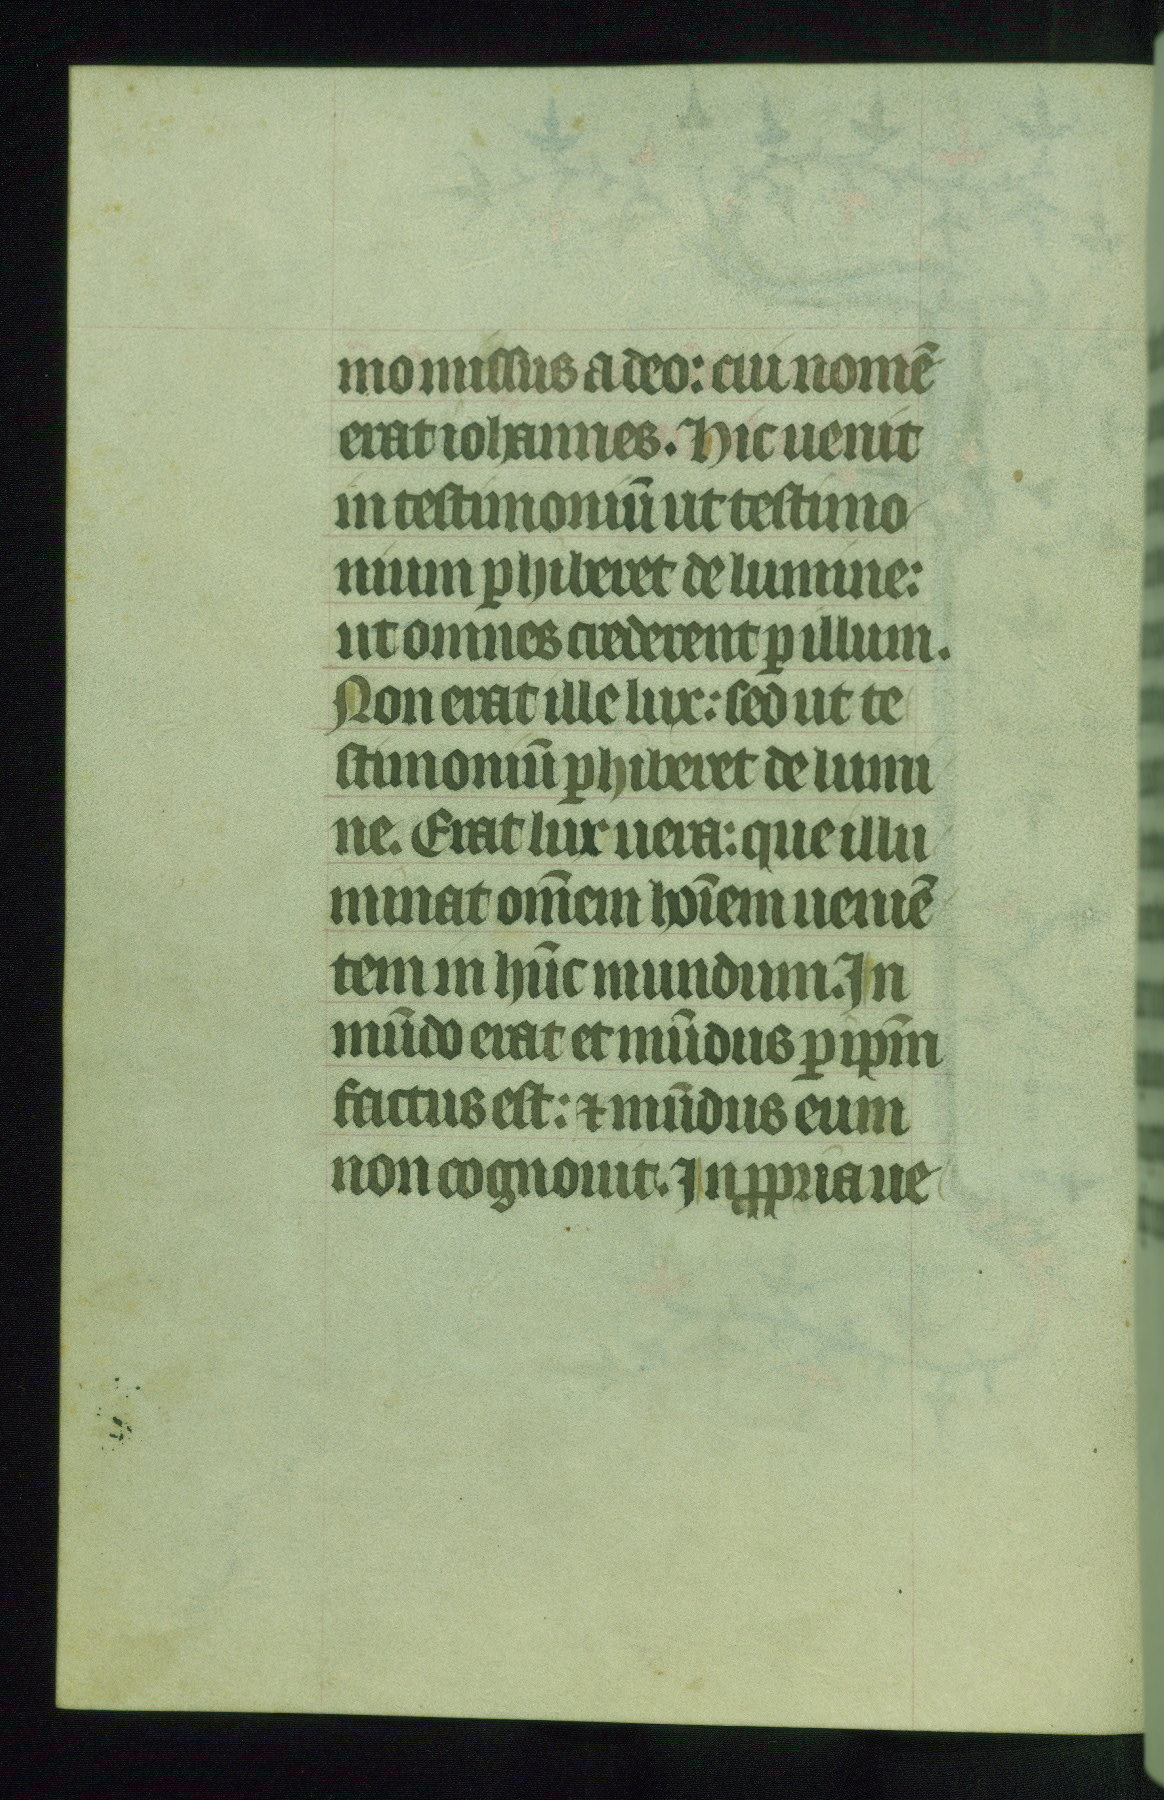 mo missus a deo: cui nomē
erat iohannes. Hic uenit
in testimoniū ut testimo
nium ꝑhiberet de lumine:
ut omnes crederent ꝑ illum.
Non erat ille lux: sed ut te
stimoniū ꝑhiberet de lumi
ne. Erat lux uera: que illu
minat om̄em hoīem ueniē
tem in hūc mundum. In
mūdo erat et mūdus ꝑ ip̄m
factus est: ⁊ mūdus eum
non cognouit. In ꝓpria ue